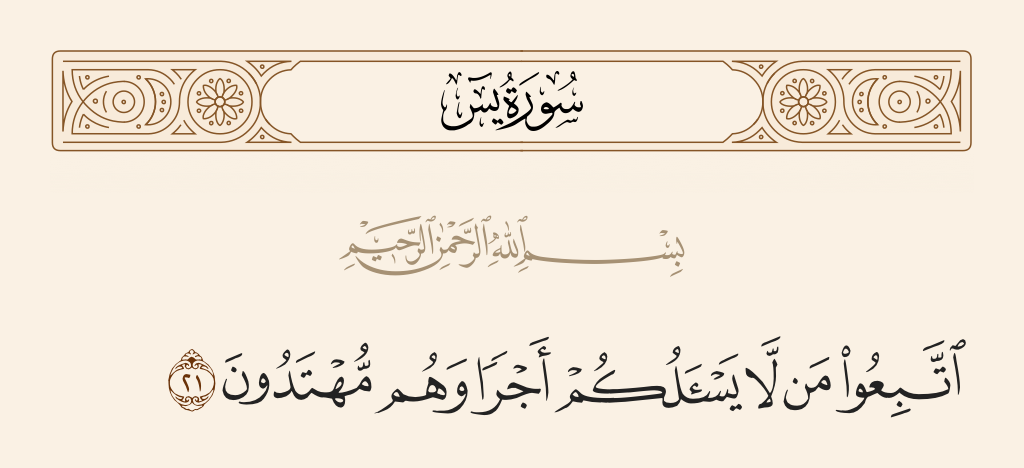 سُورَةُ يسٓ
بِسْمِ ٱللَّهِ ٱلرَّحْمَٰنِ ٱلرَّحِيمِ
ٱتَّبِعُوا۟ مَن لَّا يَسْـَٔلُكُمْ أَجْرًا وَهُم مُّهْتَدُونَ ٢١